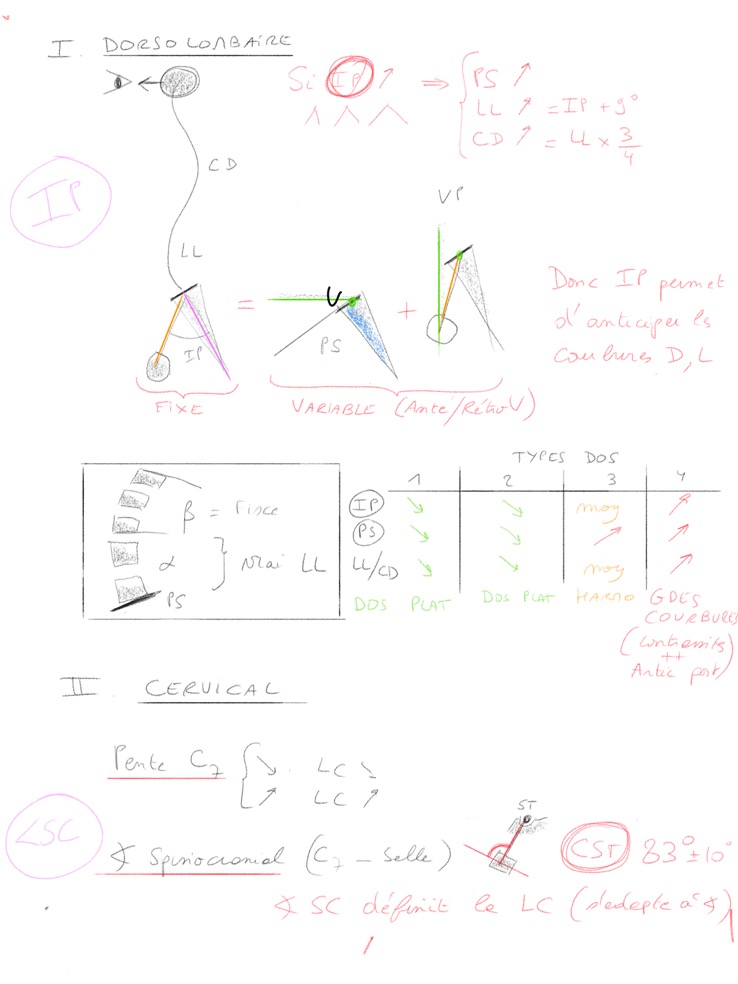 I. DORSO LOMBAIRE
Si IP ↗ ⇒
PS ↗
LL ↗ = IP + 9°
CD ↗ = LL × 3/4
CD
IP
VP
LL
IP
=
PS
+
Donc IP permet
d'anticiper les
courbures D, L
FIXE
VARIABLE (Anté/Rétro V)
TYPES DOS
1 2 3 4
IP ↘ ↘ moy ↗
PS ↘ ↘ ↗ ↗
LL/CD ↘ ↘ moy ↗
DOS PLAT DOS PLAT HARMO GDES
COURBURES
(Contraintes
++
Artic post)
β = Fixe
α } vrai LL
PS
II. CERVICAL
Pente C7 { ↘ . LC ↘
↗ LC ↗
LSC
ST
∢ Spinocranial (C7 – Selle)
CST 83° ± 10°
∢ SC définit la LC (s'adapte à ∢)